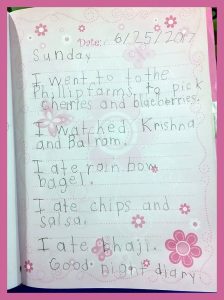 Date: 6/25/2017
Sunday
I went to to the
Phillip farms to pick
cherries and blueberries.
I watched Krishna
and Balram.
I ate rainbow
bagel.
I ate chips and
salsa.
I ate bhaji.
Good night diary.